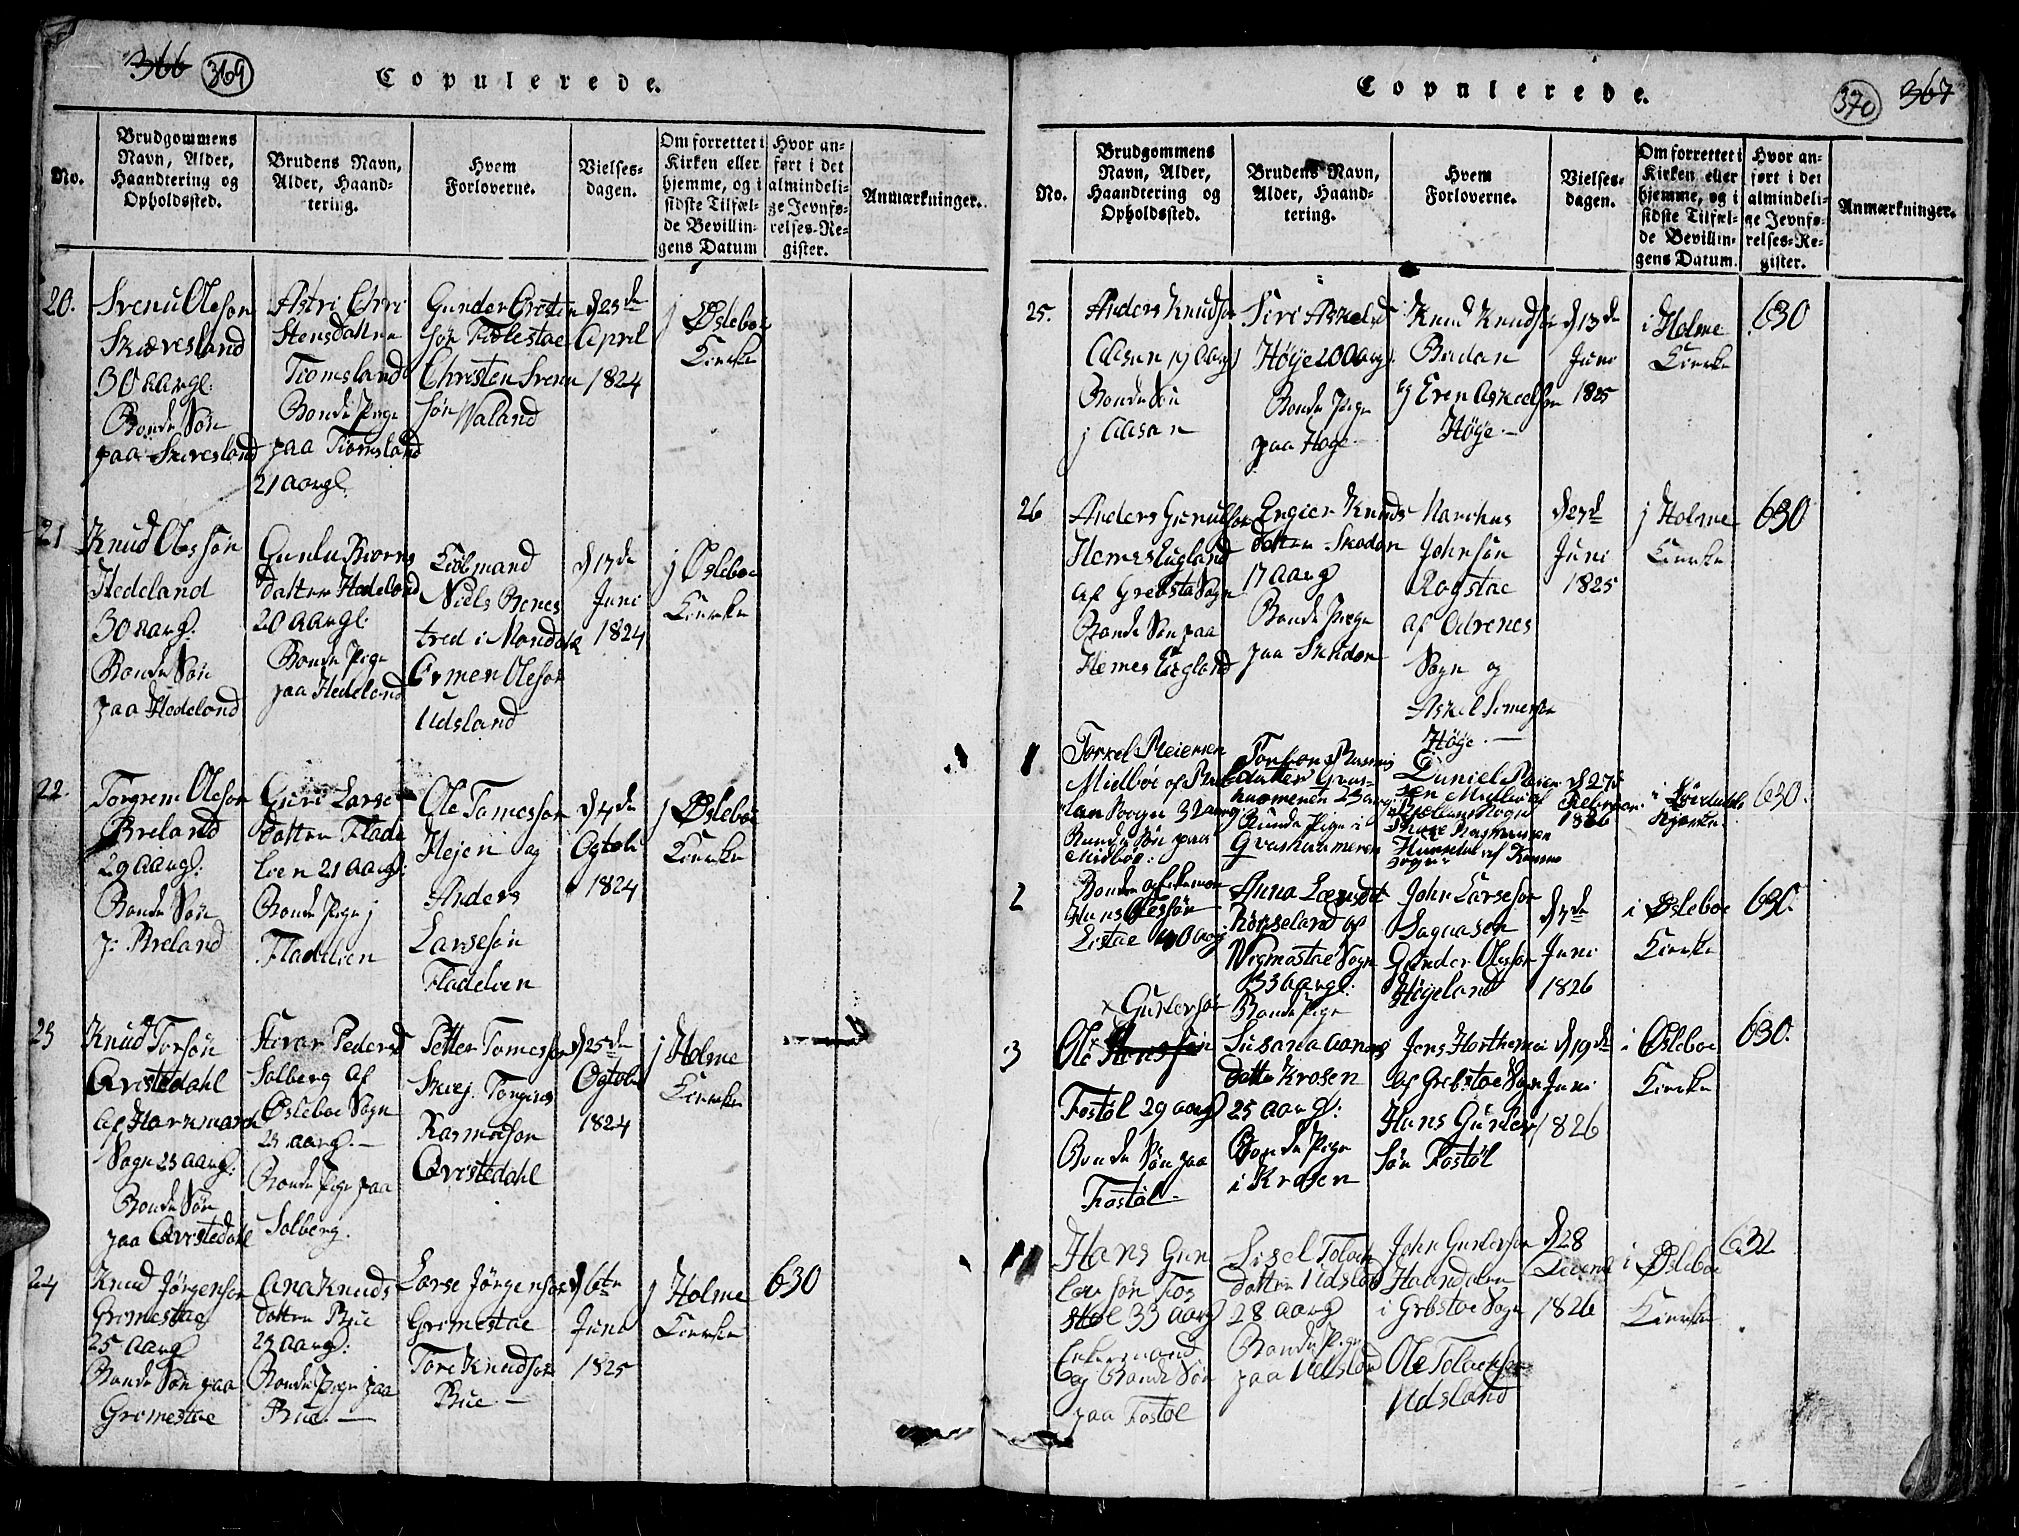 366 369
Copulerede.
No.
Brudgommens
Navn, Alder,
Haandtering og
Opholdssted.
Brudens Navn,
Alder, Haand-
tering.
Hvem
Forloverne.
Vielses-
dagen.
Om forrettet i
Kirken eller
hjemme, og i
sidste Tilfæl-
de Bevillin-
gens Datum
Hvor an-
ført i det
almindeli-
ge Jevnfø-
relses-Re-
gister.
Anmærkninger.
20.
Svenu Oleson
Skiævesland
30 aargl:
Bonde Søn
paa Skivesland
Astri Chri
Stensdattne
Tiomsland
Bonde Pige
paa Tiomsland
21 aargl:
Gunder Cristen
søn Tiælestae
Christen Svenu
søn Waland
d 23de
April
1824
j Øsleboe
Kierke
21
Knud Olessøn
Hedeland
30 aargl:
Bonde Søn
paa Hedeland
Gunlu Biorns
datter Hedeland
20 aargl:
Bonde Pige
paa Hedeland
Kiøbmand
Niels Benes
tred i Mandahl
Ormen Oleson
Udsland
d 17de
Juni
1824
j Øsleboe
Kierke
22
Torgrem Oleson
Breland
29 aargl:
Bonde Søn
j: Breland
Guri Larse
datter Flade
lien 21 aargl:
Bonde Pige j
Fladelien
Ole Tomesson
Hejen og
Anders
Larsesøn
Fladelien
d 4de
Ogtobr
1824
j Øsleboe
Kierke
23
Knud Torsøn
Qvistedahl
af Harkmark
Sogn 23 aargl:
Bonde Søn
paa Qvistedahl
Pedersd
Solberg af
Øsleboe Sogn
23 aargl. —
Bonde Pige paa
Solberg.
Petter Tomesson
Skiej. Torgius
Rasmuson
Qvistedahl
d 25de
Ogtobr
1824
j Holme
Kierke
24
Knud Jørgenson
Gromestae
25 aargl
Bonde Søn paa
Gromestae
Ana Knuds
datter Bue
23 aargl:
Bonde Pige paa
Bue. —
Larse Jørgensøn
Gromestae
Tore Knudson
Bue. —
d 6te
Juni
1825
j Holme
Kierke
630
370 367
Copulerede.
No.
Brudgommens
Navn, Alder,
Haandtering og
Opholdssted.
Brudens Navn,
Alder, Haand-
tering.
Hvem
Forloverne.
Vielses-
dagen.
Om forrettet i
Kirken eller
hjemme, og i
sidste Tilfæl-
de Bevillin-
gens Datum.
Hvor an-
ført i det
almindeli-
ge Jevnfø-
relses-Re-
gister.
Anmærkninger.
25.
Anders Knudsøn
Aasan 19 Aargl
Bonde Søn
j Aasan
Siri Askelsd
Høije 20 Aargl:
Bonde Pige
paa Hoge —
Knud Knudsøn
og Even Askelsøn
Høije. —
d 13de
Juni
1825
i Holme
Kierke
630
26
Anders
af Grebsta Sogn
Bonde Søn paa
Engier Knuds
datter Skodan
17 aarg
Bonde Pige
paa Skudan
Marchus
Johnsøn
Rogstae
af Odrenes
Sogn og
Askel
Høije. —
d 23de
Juni
1825
j Holme
Kierke
630
1
Torkel Reiersen
Midbøe af
lan Sogn 32 aarg
Bonde Søn paa
Midbøe:
Torbor Rasmus
datter Qvas
hammeren 23 aarg
Bonde Pige i
Qvashammeren
Daniel Reier
sen Midbøe af
Sogn
Rasmussen
Sogn
d 27de
Februar
1826
i
Kjerke
630.
2
Hans Olessøn
Listae 40 aarg
Anna Larsdot
Rønseland af
Vigmostae Sogn
33 aargl:
Bonde Pige
John Larseson
Gunder Olesson
Høyeland
d 7de
Juni
1826
i Øsleboe
Kierke
630.
3
x Gunlersøn
Ole
Fostøl 29 aargl
Bonde Søn paa
Fostøl —
Susana Aanens
datter Krosen
25 aargl:
Bonde Pige
i Krosen
Jens
af Grebstoe Sogn
Hans Gunler
søn Fostøl
d 19de
Juni
1826
i Øsleboe
Kierke
630.
Hans Gun
Ler søn Fos
støl 33 aargl
Enkemand
og Bonde Søn
paa Fostøl
Lisel Tolach
datter Udsland
28 aargl
Bonde Pige
paa Udsland
John Gunlersøn
i Grebstoe Sogn
Ole Tolachsøn
Udsland
d 28
1826
i Øsleboe
Kierke
632